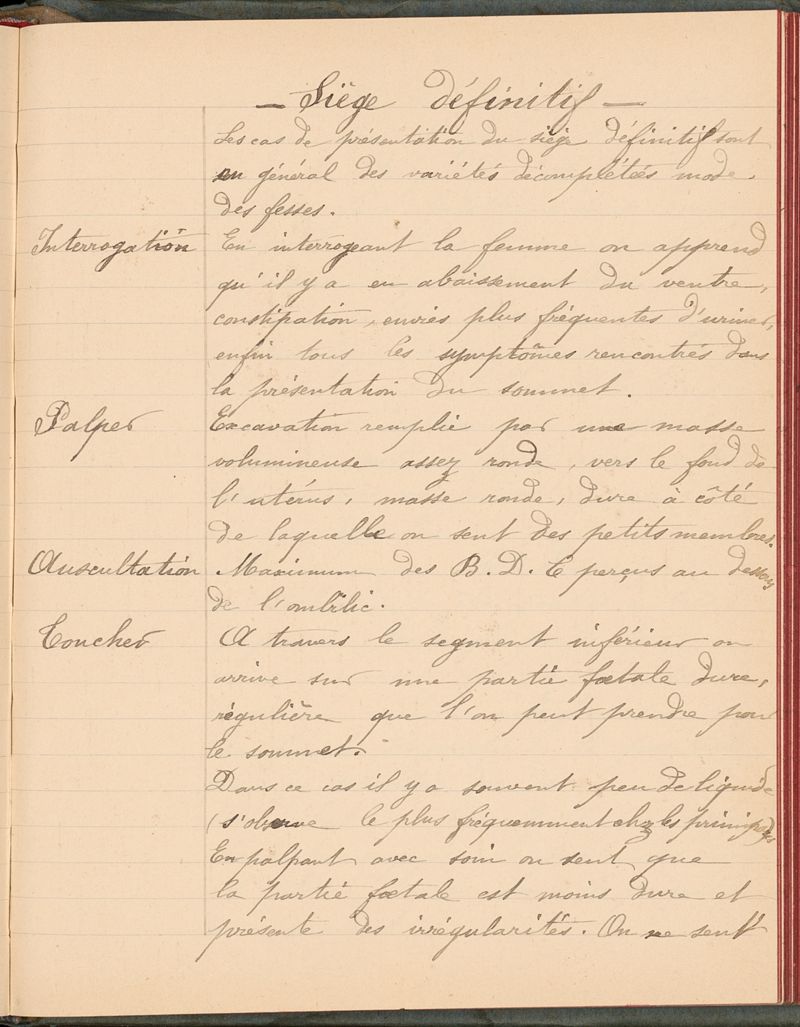 — Siège définitif —
Les cas de présentation du siège définitif sont
en général des variétés décomplétées mode
des fesses.
Interrogation En interrogeant la femme on apprend
qu'il y a eu abaissement du ventre,
constipation, envies plus fréquentes d'uriner,
enfin tous les symptômes rencontrés dans
la présentation du sommet.
Palper Excavation remplie par une masse
volumineuse assez ronde, vers le fond de
l'utérus, masse ronde, dure à côté
de laquelle on sent des petits membres.
Auscultation Maximum des B. D. C perçus au dessous
de l'ombilic.
Toucher A travers le segment inférieur on
arrive sur une partie fœtale dure,
régulière que l'on peut prendre pour
le sommet.
Dans ce cas il y a souvent peu de liquide
(s'observe le plus fréquemment chez les primipares
En palpant avec soin on sent que
la partie fœtale est moins dure et
présente des irrégularités. On ne sent